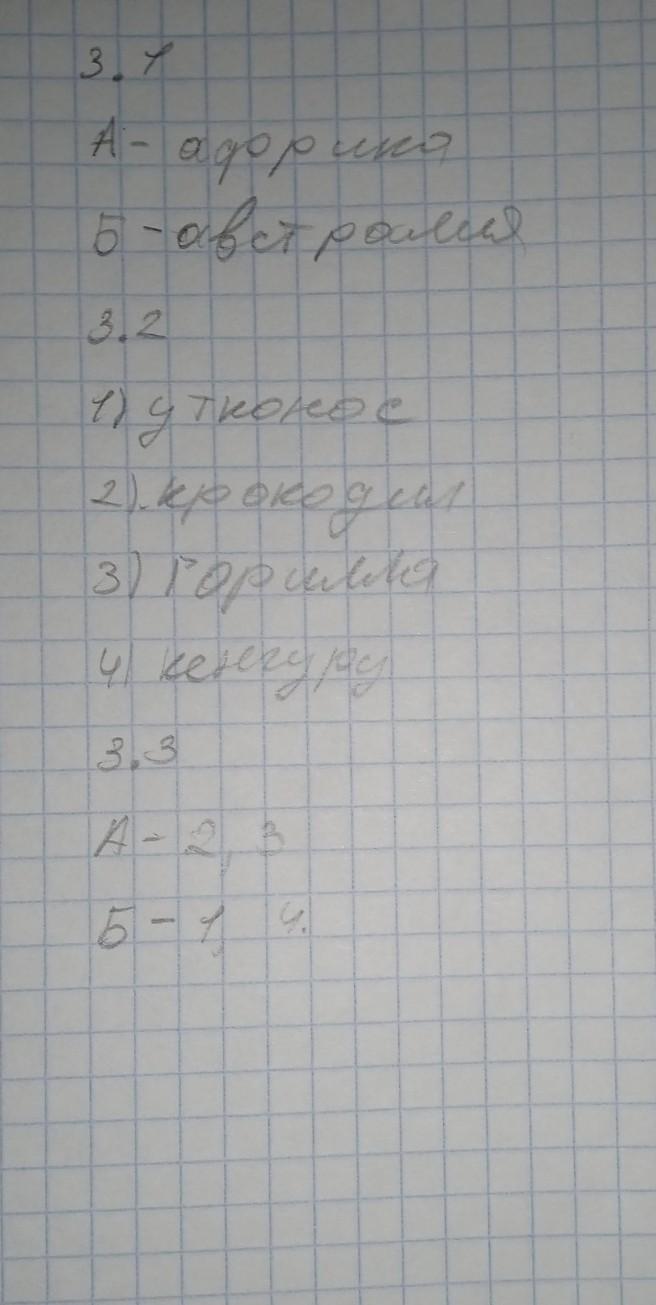 3.1
А - афорика
Б - австралия
3.2
1) утконос
2) крокодил
3) Горилла
4) кенгуру
3.3
А - 2, 3
Б - 1, 4.